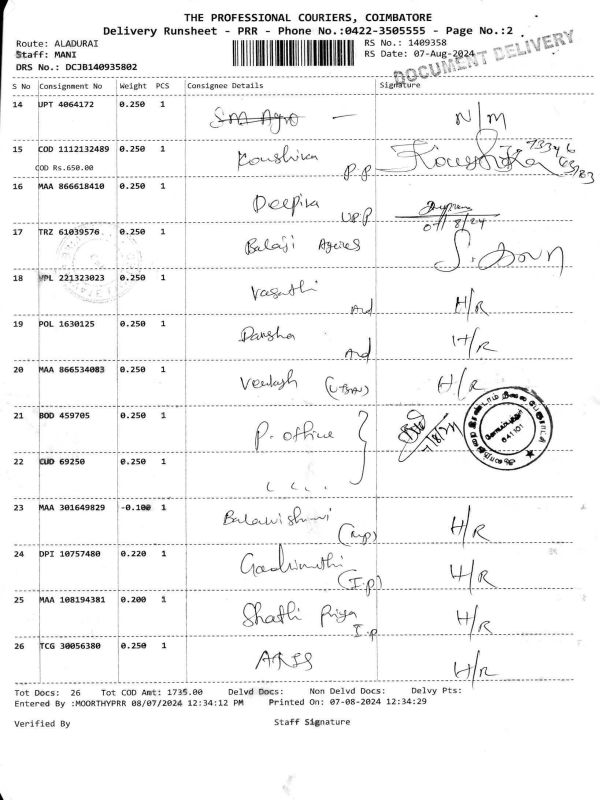 THE PROFESSIONAL COURIERS, COIMBATORE
Delivery Runsheet - PRR - Phone No.:0422-3505555 - Page No.:2
Route: ALADURAI RS No.: 1409358
Staff: MANI RS Date: 07-Aug-2024
DRS No.: DCJB140935802
DOCUMENT DELIVERY
S No Consignment No Weight PCS Consignee Details Signature
14 UPT 4064172 0.250 1 SM Agro — N/M
15 COD 1112132489 0.250 1 Koushika P.P Koushika
COD Rs.650.00
16 MAA 866618410 0.250 1 Deepika U.P.P 07/8/24
17 TRZ 61039576 0.250 1 Balaji
18 VPL 221323023 0.250 1 Vasathi H/R
19 POL 1630125 0.250 1 H/R
20 MAA 866534083 0.250 1 Venkatesh H/R
21 BOD 459705 0.250 1 P. office 7/8/24
641101
22 CUD 69250 0.250 1 " "
23 MAA 301649829 -0.100 1 H/R
24 DPI 10757480 0.220 1 (I.P) H/R
25 MAA 108194381 0.200 1 Shathi Priya I.P H/R
26 TCG 30056380 0.250 1 H/R
Tot Docs: 26 Tot COD Amt: 1735.00 Delvd Docs: Non Delvd Docs: Delvy Pts:
Entered By :MOORTHYPRR 08/07/2024 12:34:12 PM Printed On: 07-08-2024 12:34:29
Verified By Staff Signature